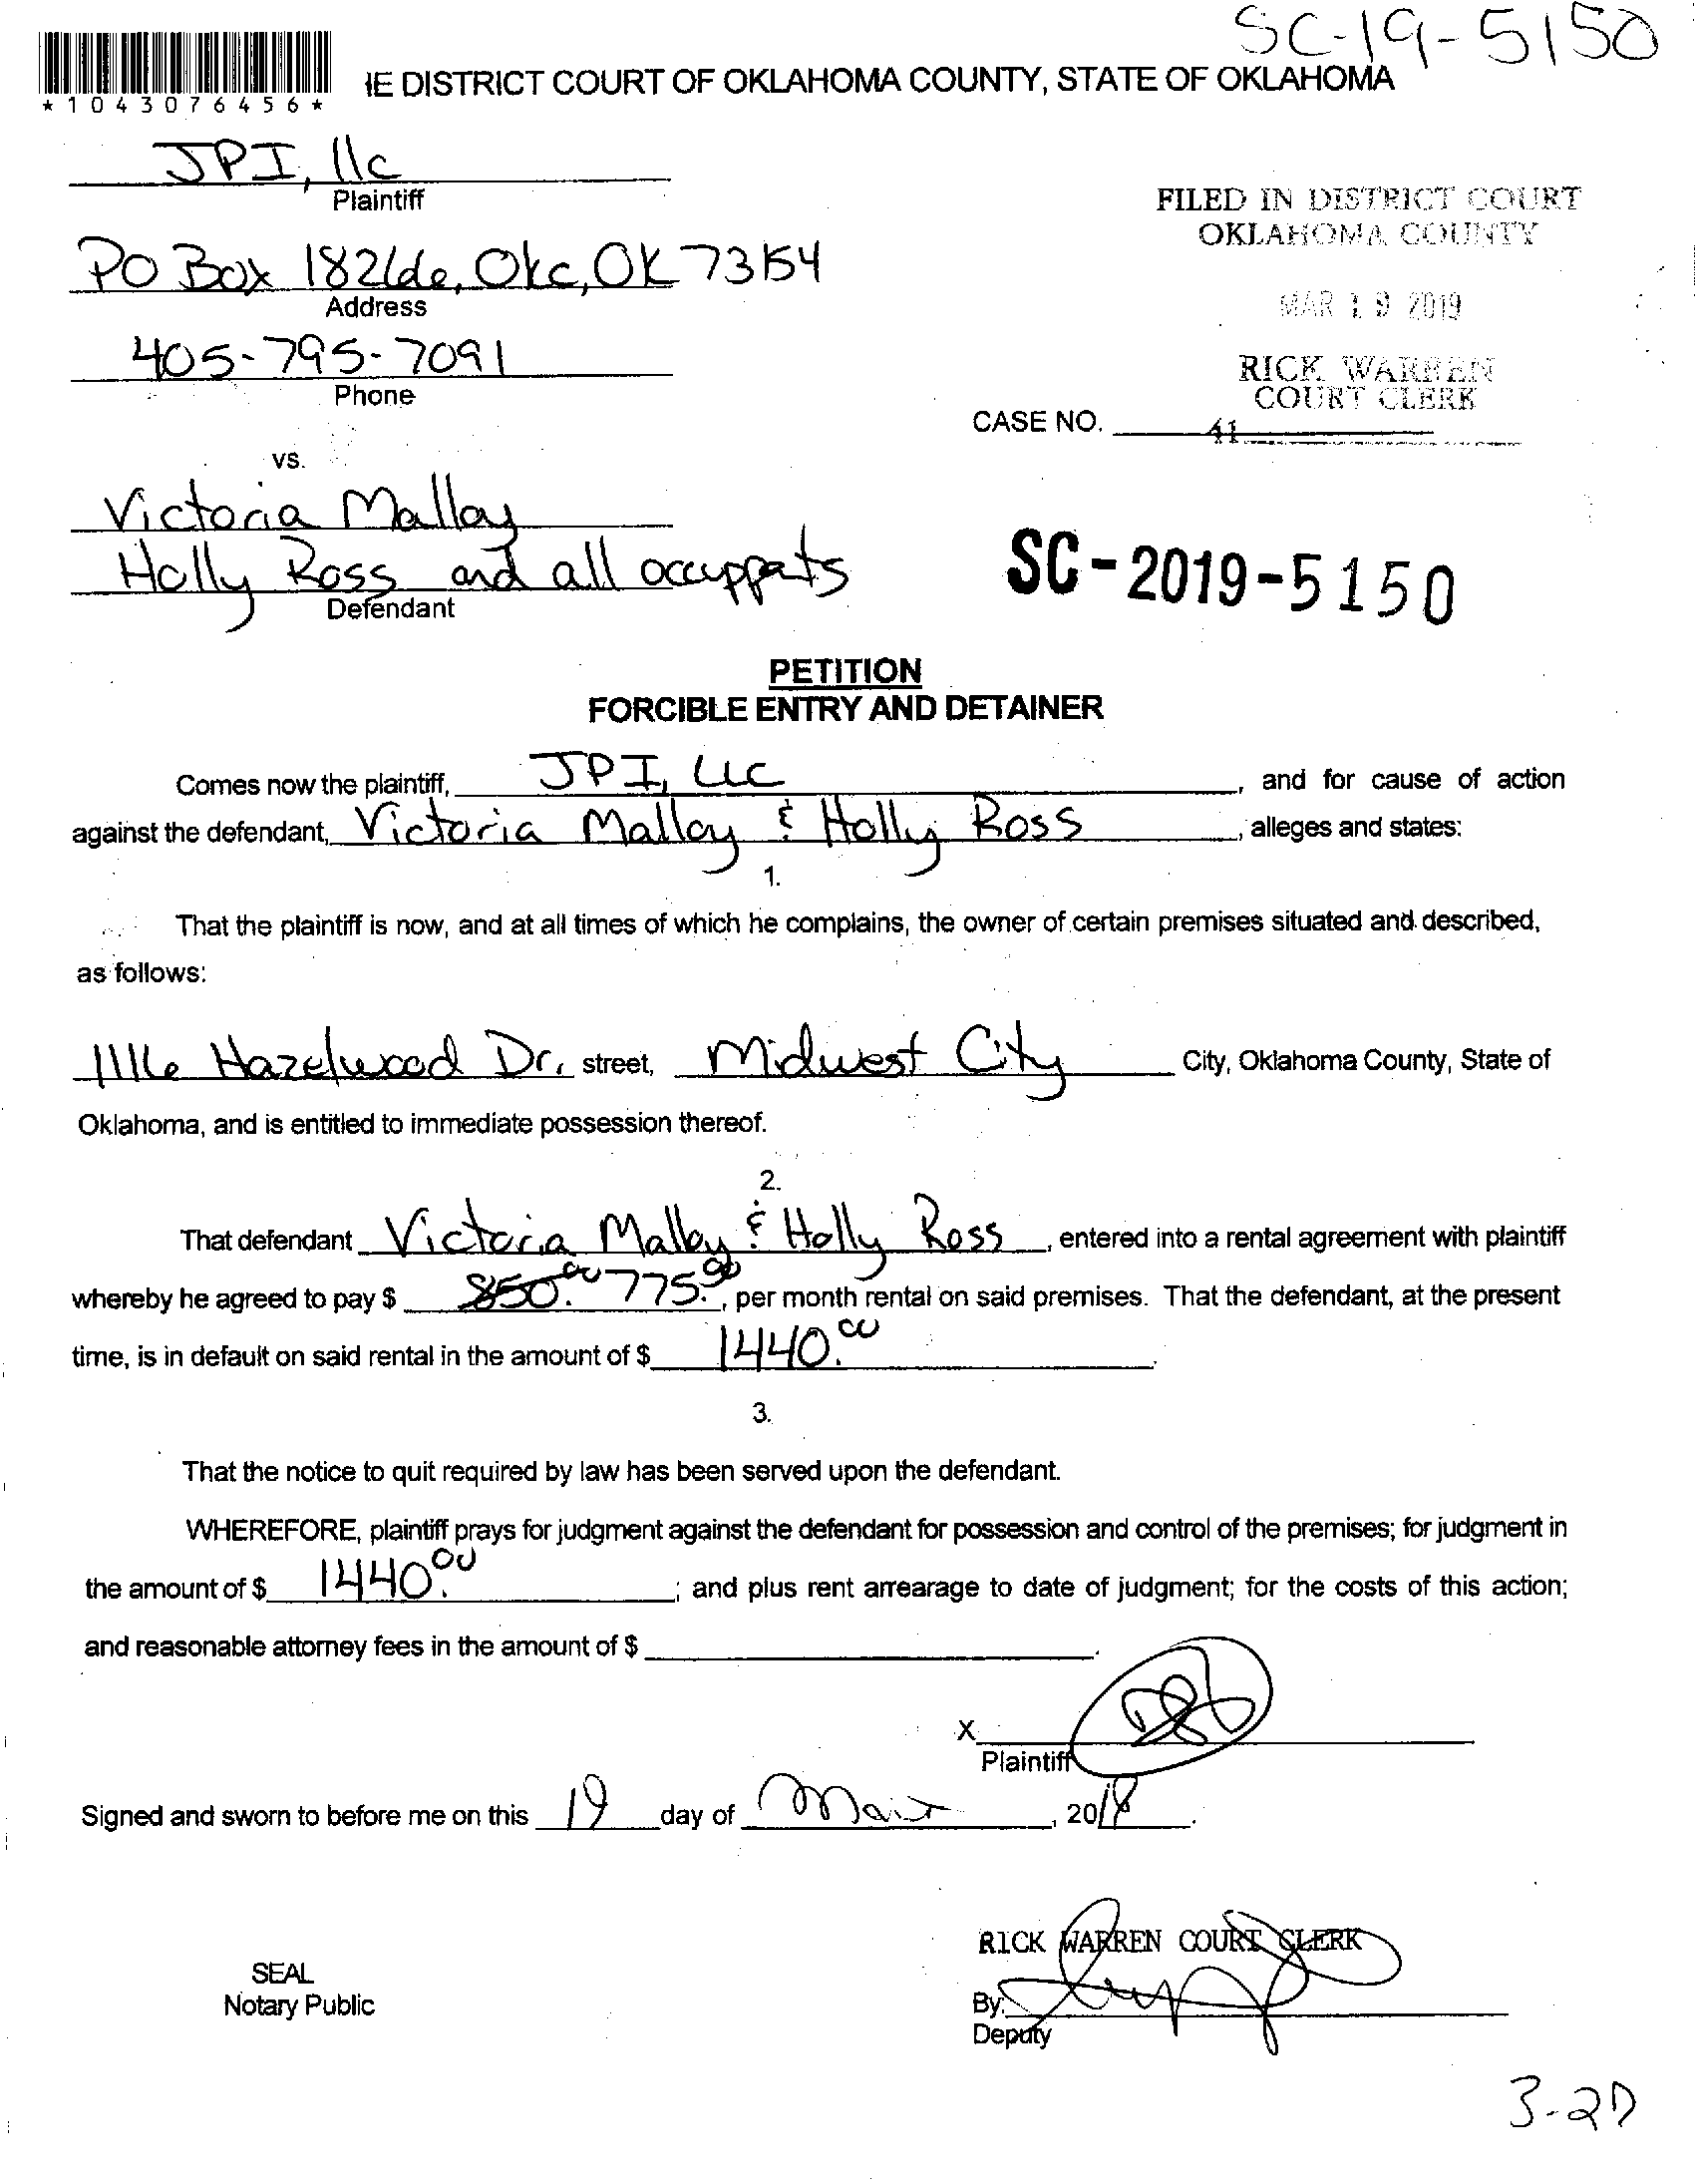 SC-19-5150
*1043076456*
IE DISTRICT COURT OF OKLAHOMA COUNTY, STATE OF OKLAHOMA
JPI, llc
Plaintiff
FILED IN DISTRICT COURT
OKLAHOMA COUNTY
PO Box 18266, Okc, OK 73154
Address
MAR 19 2019
405-795-7091
Phone
RICK WARREN
COURT CLERK
CASE NO.
41
vs.
Victoria Malloy
Holly Ross and all occuppats
Defendant
SC-2019-5150
PETITION
FORCIBLE ENTRY AND DETAINER
Comes now the plaintiff, JPI, LLC, and for cause of action
against the defendant, Victoria Malloy & Holly Ross, alleges and states:
1.
That the plaintiff is now, and at all times of which he complains, the owner of certain premises situated and described,
as follows:
1116 Hazelwood Dr. street, Midwest City City, Oklahoma County, State of
Oklahoma, and is entitled to immediate possession thereof.
2.
That defendant Victoria Malloy & Holly Ross, entered into a rental agreement with plaintiff
whereby he agreed to pay $ 850.00 775.00, per month rental on said premises. That the defendant, at the present
time, is in default on said rental in the amount of $ 1440.00.
3.
That the notice to quit required by law has been served upon the defendant.
WHEREFORE, plaintiff prays for judgment against the defendant for possession and control of the premises; for judgment in
the amount of $ 1440.00; and plus rent arrearage to date of judgment; for the costs of this action;
and reasonable attorney fees in the amount of $.
X
Plaintiff
Signed and sworn to before me on this 19 day of , 20.
RICK WARREN COURT CLERK
SEAL
Notary Public
By:
Deputy